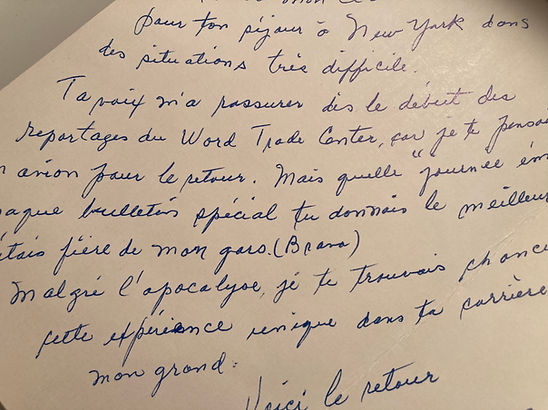 pour ton séjour à New York dans
des situations très difficile.
Ta voix m'a rassurer dès le début des
reportages du Word Trade Center, car je te pensais
avion pour le retour. Mais quelle "journée
bulletin spécial tu donnais le meilleur
étais fière de mon gars. (Bravo)
Malgré l'apocalyse, je te trouvais chance
cette expérience unique dans ta carrière
mon grand.
Voici le retour